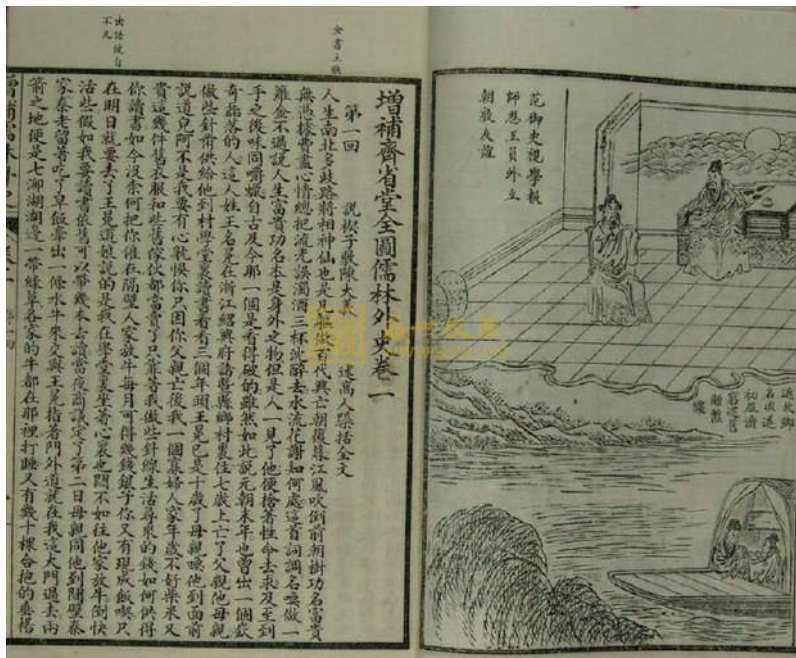 范御史視學報
師恩王員外立
朝敦友誼
全書主腦
出語便自
不凡
增補齊省堂全圖儒林外史卷一
第一回 說楔子敷陳大義 述高人隱括全文
人生南北多歧路將相神仙也是凡人做百代興亡朝復暮江風吹倒前朝樹功名富貴
無憑據費盡心情總把流光誤濁酒三杯沈醉去水流花謝知何處這首詞調名喚做一
雖命不過說人生富貴功名本是身外之物但是人一見了他便捨著性命去求及至到
手之後味同嚼蠟自古及今那一個是看得破的雖然如此說元朝末年也曾出一個嶔
奇磊落的人這人姓王名冕在浙江紹興府諸曁縣鄉村裏住七歲上亡了父親他母親
做些針黹供給他到村學堂裏讀書看看三個年頭王冕已是十歲了母親喚他到面前
說道兒阿不是我要有心躭悞你只因你父親亡後我一個寡婦人家年歲不好柴米又
貴這幾件舊衣服和些舊傢伙都當賣了只靠著我做些針線生活尋來的錢如何供得
你讀書如今沒奈何把你僱在隔壁人家放牛每月可得幾錢銀子你又有現成飯喫只
在明日就要去了王冕道娘說的是我在學堂裏坐著心裏也悶不如往他家放牛倒快
活些假如我要讀書依舊可以帶幾本去讀當夜商議定了第二日母親同他到間壁秦
家秦老留著吃了早飯牽出一條水牛來交與王冕指著門外道就在我這大門過去兩
箭之地便是七泖湖湖邊一帶綠草各家的牛都在那裡打睡又有幾十棵合抱的垂楊